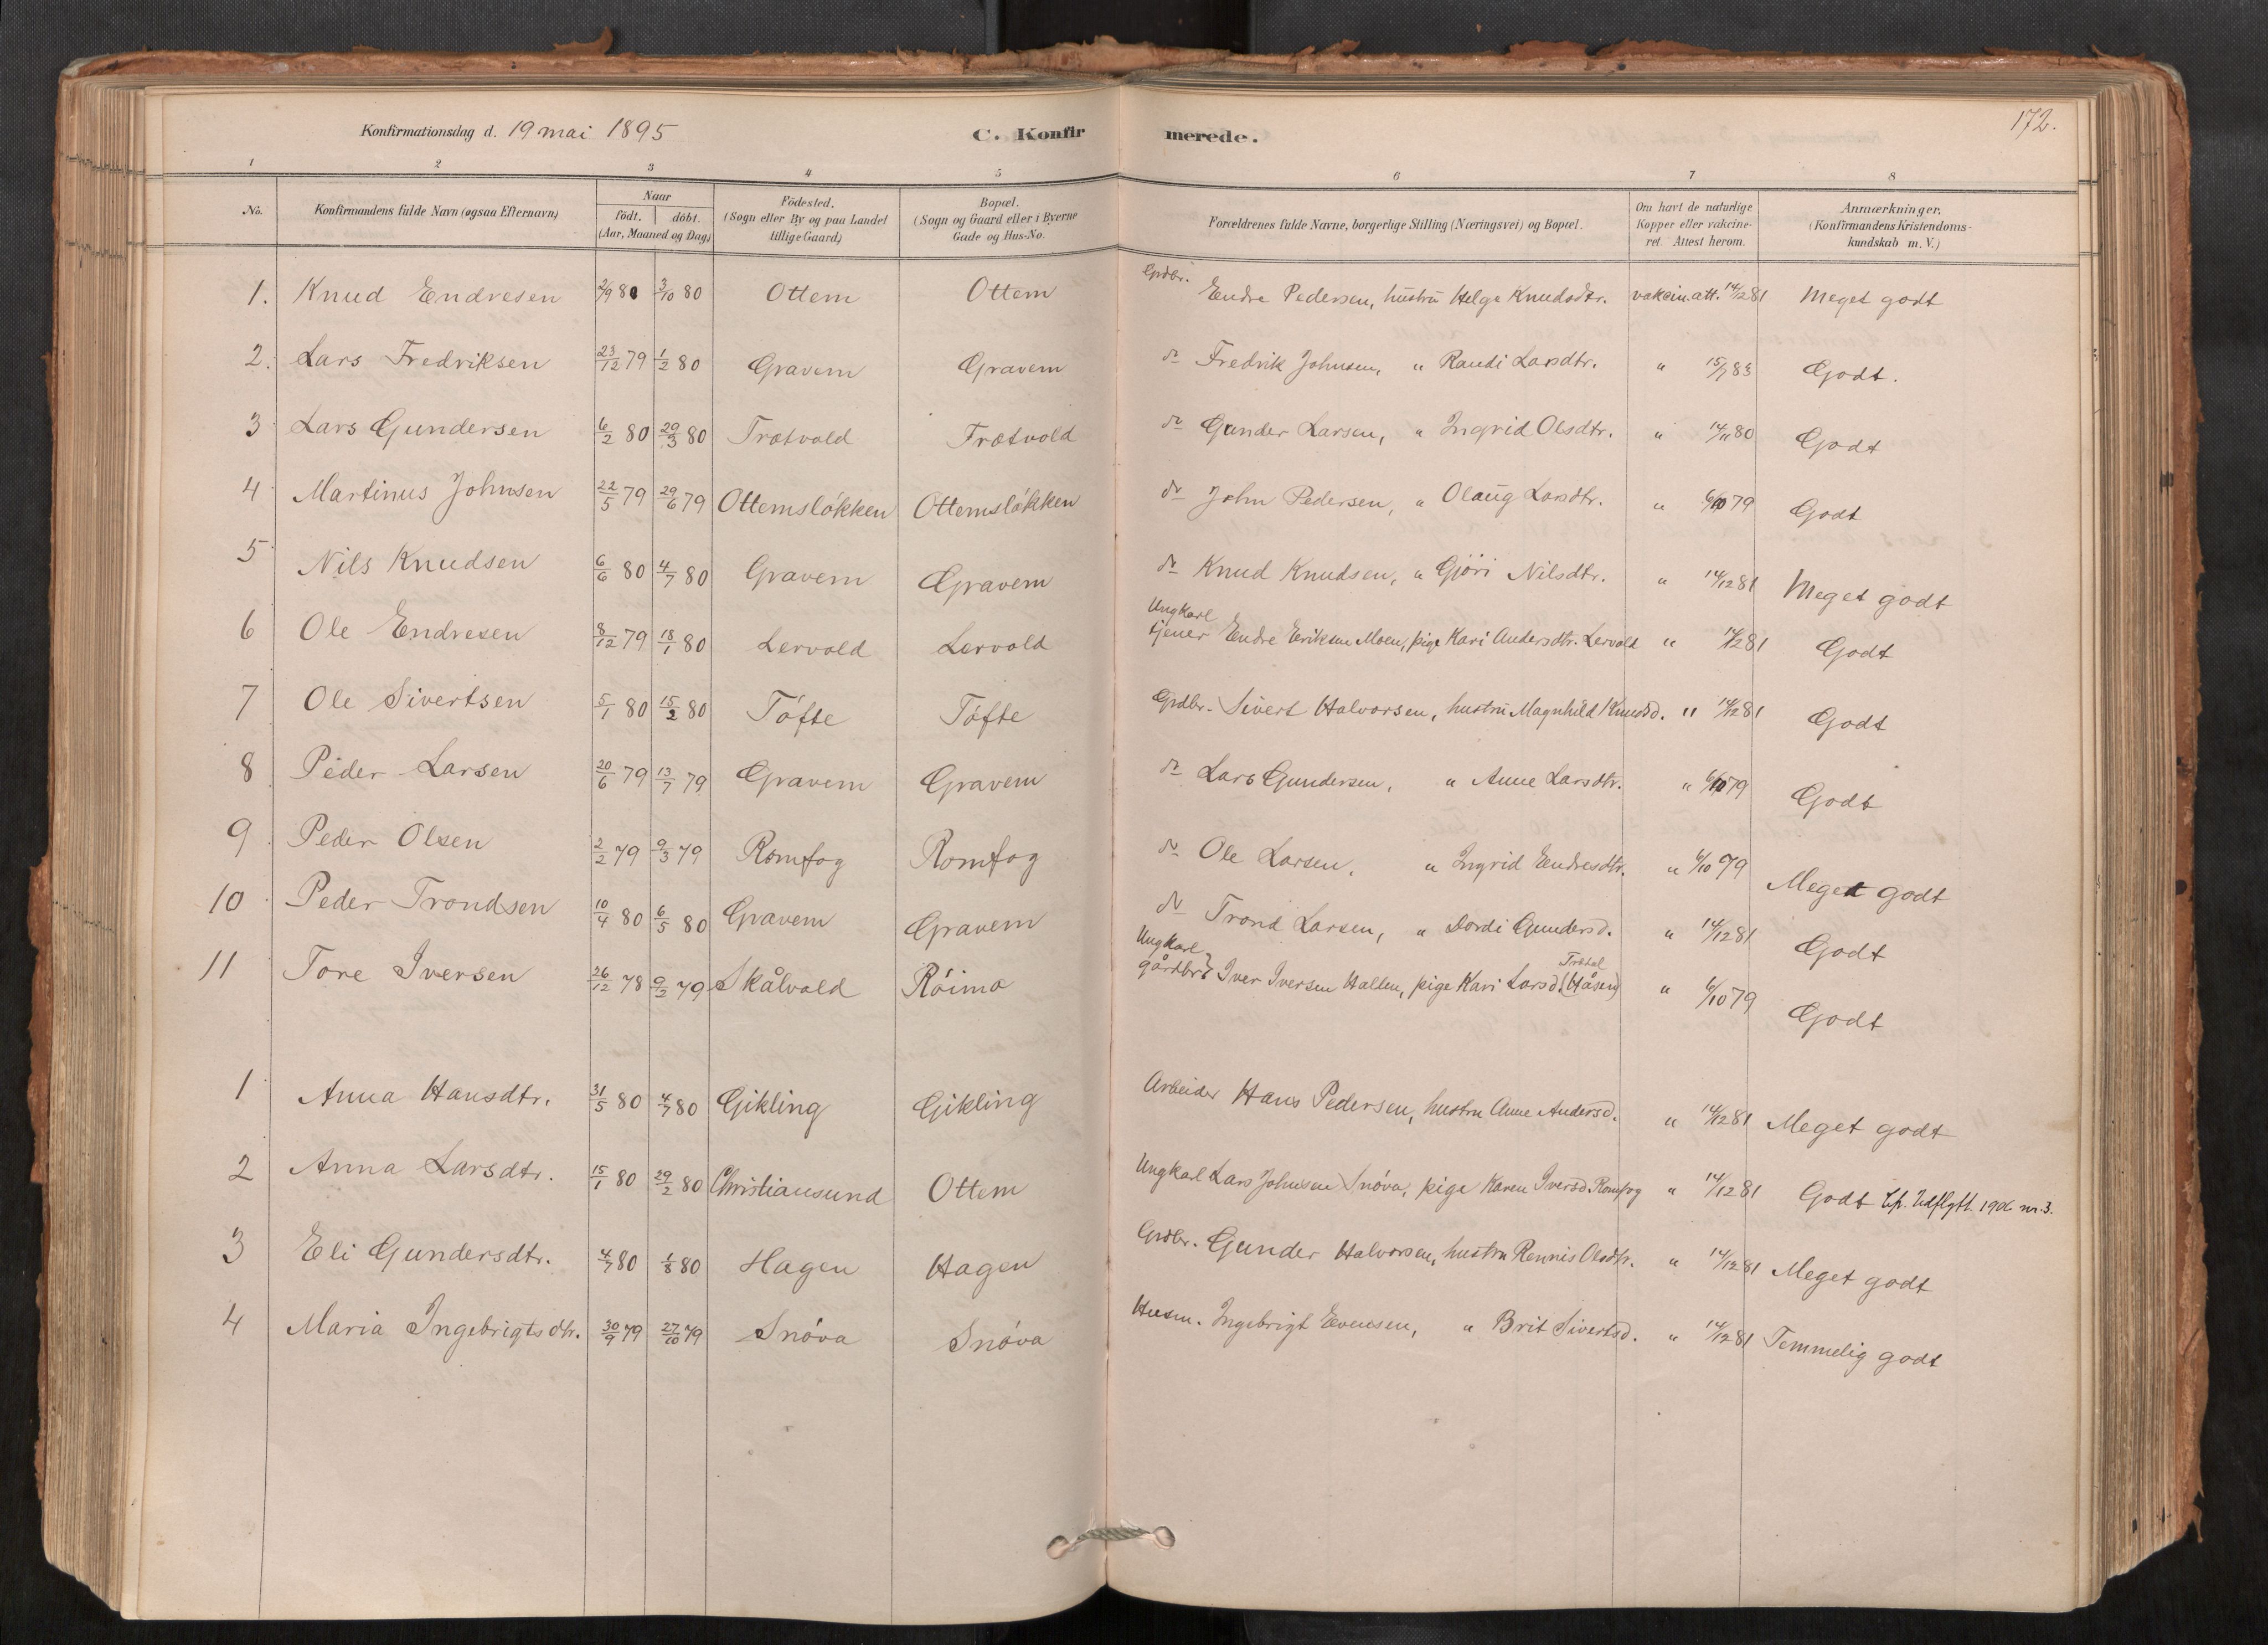 172.
Konfirmationsdag d. 19 mai 1895 C. Konfirmerede.
1 2 3 4 5 6 7 8
No. Konfirmandens fulde Navn (ogsaa Efternavn) Naar födt. döbt. (Aar, Maaned og Dag) Födested. (Sogn eller By og paa Landet tillige Gaard) Bopæl. (Sogn og Gaard eller i Byerne Gade og Hus-No. Forældrenes fulde Navne, borgerlige Stilling (Næringsvei) og Bopæl. Om havt de naturlige Kopper eller vakcineret. Attest herom. Anmærkninger. (Konfirmandens Kristendomskundskab m. V.)
1. Knud Endresen 2/9 80 3/10 80 Ottem Ottem Grdbr. Endre Pedersen, hustru Helge Knudsdtr. vakcin. att. 14/12 81 Meget godt
2. Lars Fredriksen 23/12 79 1/2 80 Gravem Gravem do Fredrik Johnsen, " Randi Larsdtr. " 15/7 83 Godt.
3 Lars Gundersen 6/2 80 29/3 80 Trætvold Trætvold do Gunder Larsen, " Ingrid Olsdtr. " 14/11 80 Godt
4 Martinus Johnsen 22/5 79 29/6 79 Ottemslökken Ottemslökken do John Pedersen, " Olaug Larsdtr. " 6/10 79 Godt
5 Nils Knudsen 6/6 80 4/7 80 Gravem Gravem do Knud Knudsen, " Gjöri Nilsdtr. " 14/12 81 Meget godt
6 Ole Endresen 8/12 79 18/1 80 Lervold Lervold Ungkarl tjener Endre Eriksen Moen, pige Kari Andersdtr. Lervold " 14/12 81 Godt
7 Ole Sivertsen 5/1 80 15/2 80 Töfte Töfte Grdbr. Sivert Halvorsen, hustru Magnhild Knudsd. " 14/12 81 Godt
8 Peder Larsen 20/6 79 13/7 79 Gravem Gravem do Lars Gundersen, " Anne Larsdtr. " 6/10 79 Godt
9 Peder Olsen 2/2 79 9/3 79 Romfog Romfog do Ole Larsen, " Ingrid Endresdtr. " 6/10 79 Meget godt
10 Peder Trondsen 10/4 80 6/5 80 Gravem Gravem do Trond Larsen, " Dordi Gundersd. " 14/12 81 Godt
11 Tore Iversen 26/12 78 9/2 79 Skålvold Röimo Ungkarl gårdbr. Iver Iversen Hallen, pige Kari Larsd. (Håsen) " 6/10 79 Godt
1 Anna Hansdtr. 31/5 80 4/7 80 Gikling Gikling Arbeider Hans Pedersen, hustru Anne Andersd. " 14/12 81 Meget godt
2 Anna Larsdtr. 15/1 80 29/2 80 Christiansund Ottem Ungkarl Lars Johnsen Snöva, pige Karen Iversd. Romfog " 14/12 81 Godt Udflytt. 1906 nr. 3.
3 Eli Gundersdtr. 4/7 80 1/8 80 Hagen Hagen Grdbr. Gunder Halvorsen, hustru Rennis Olsdtr. " 14/12 81 Meget godt
4 Maria Ingebrigtsdtr. 30/9 79 27/10 79 Snöva Snöva Husm. Ingebrigt Evensen, " Brit Sivertsd. " 14/12 81 Temmelig godt